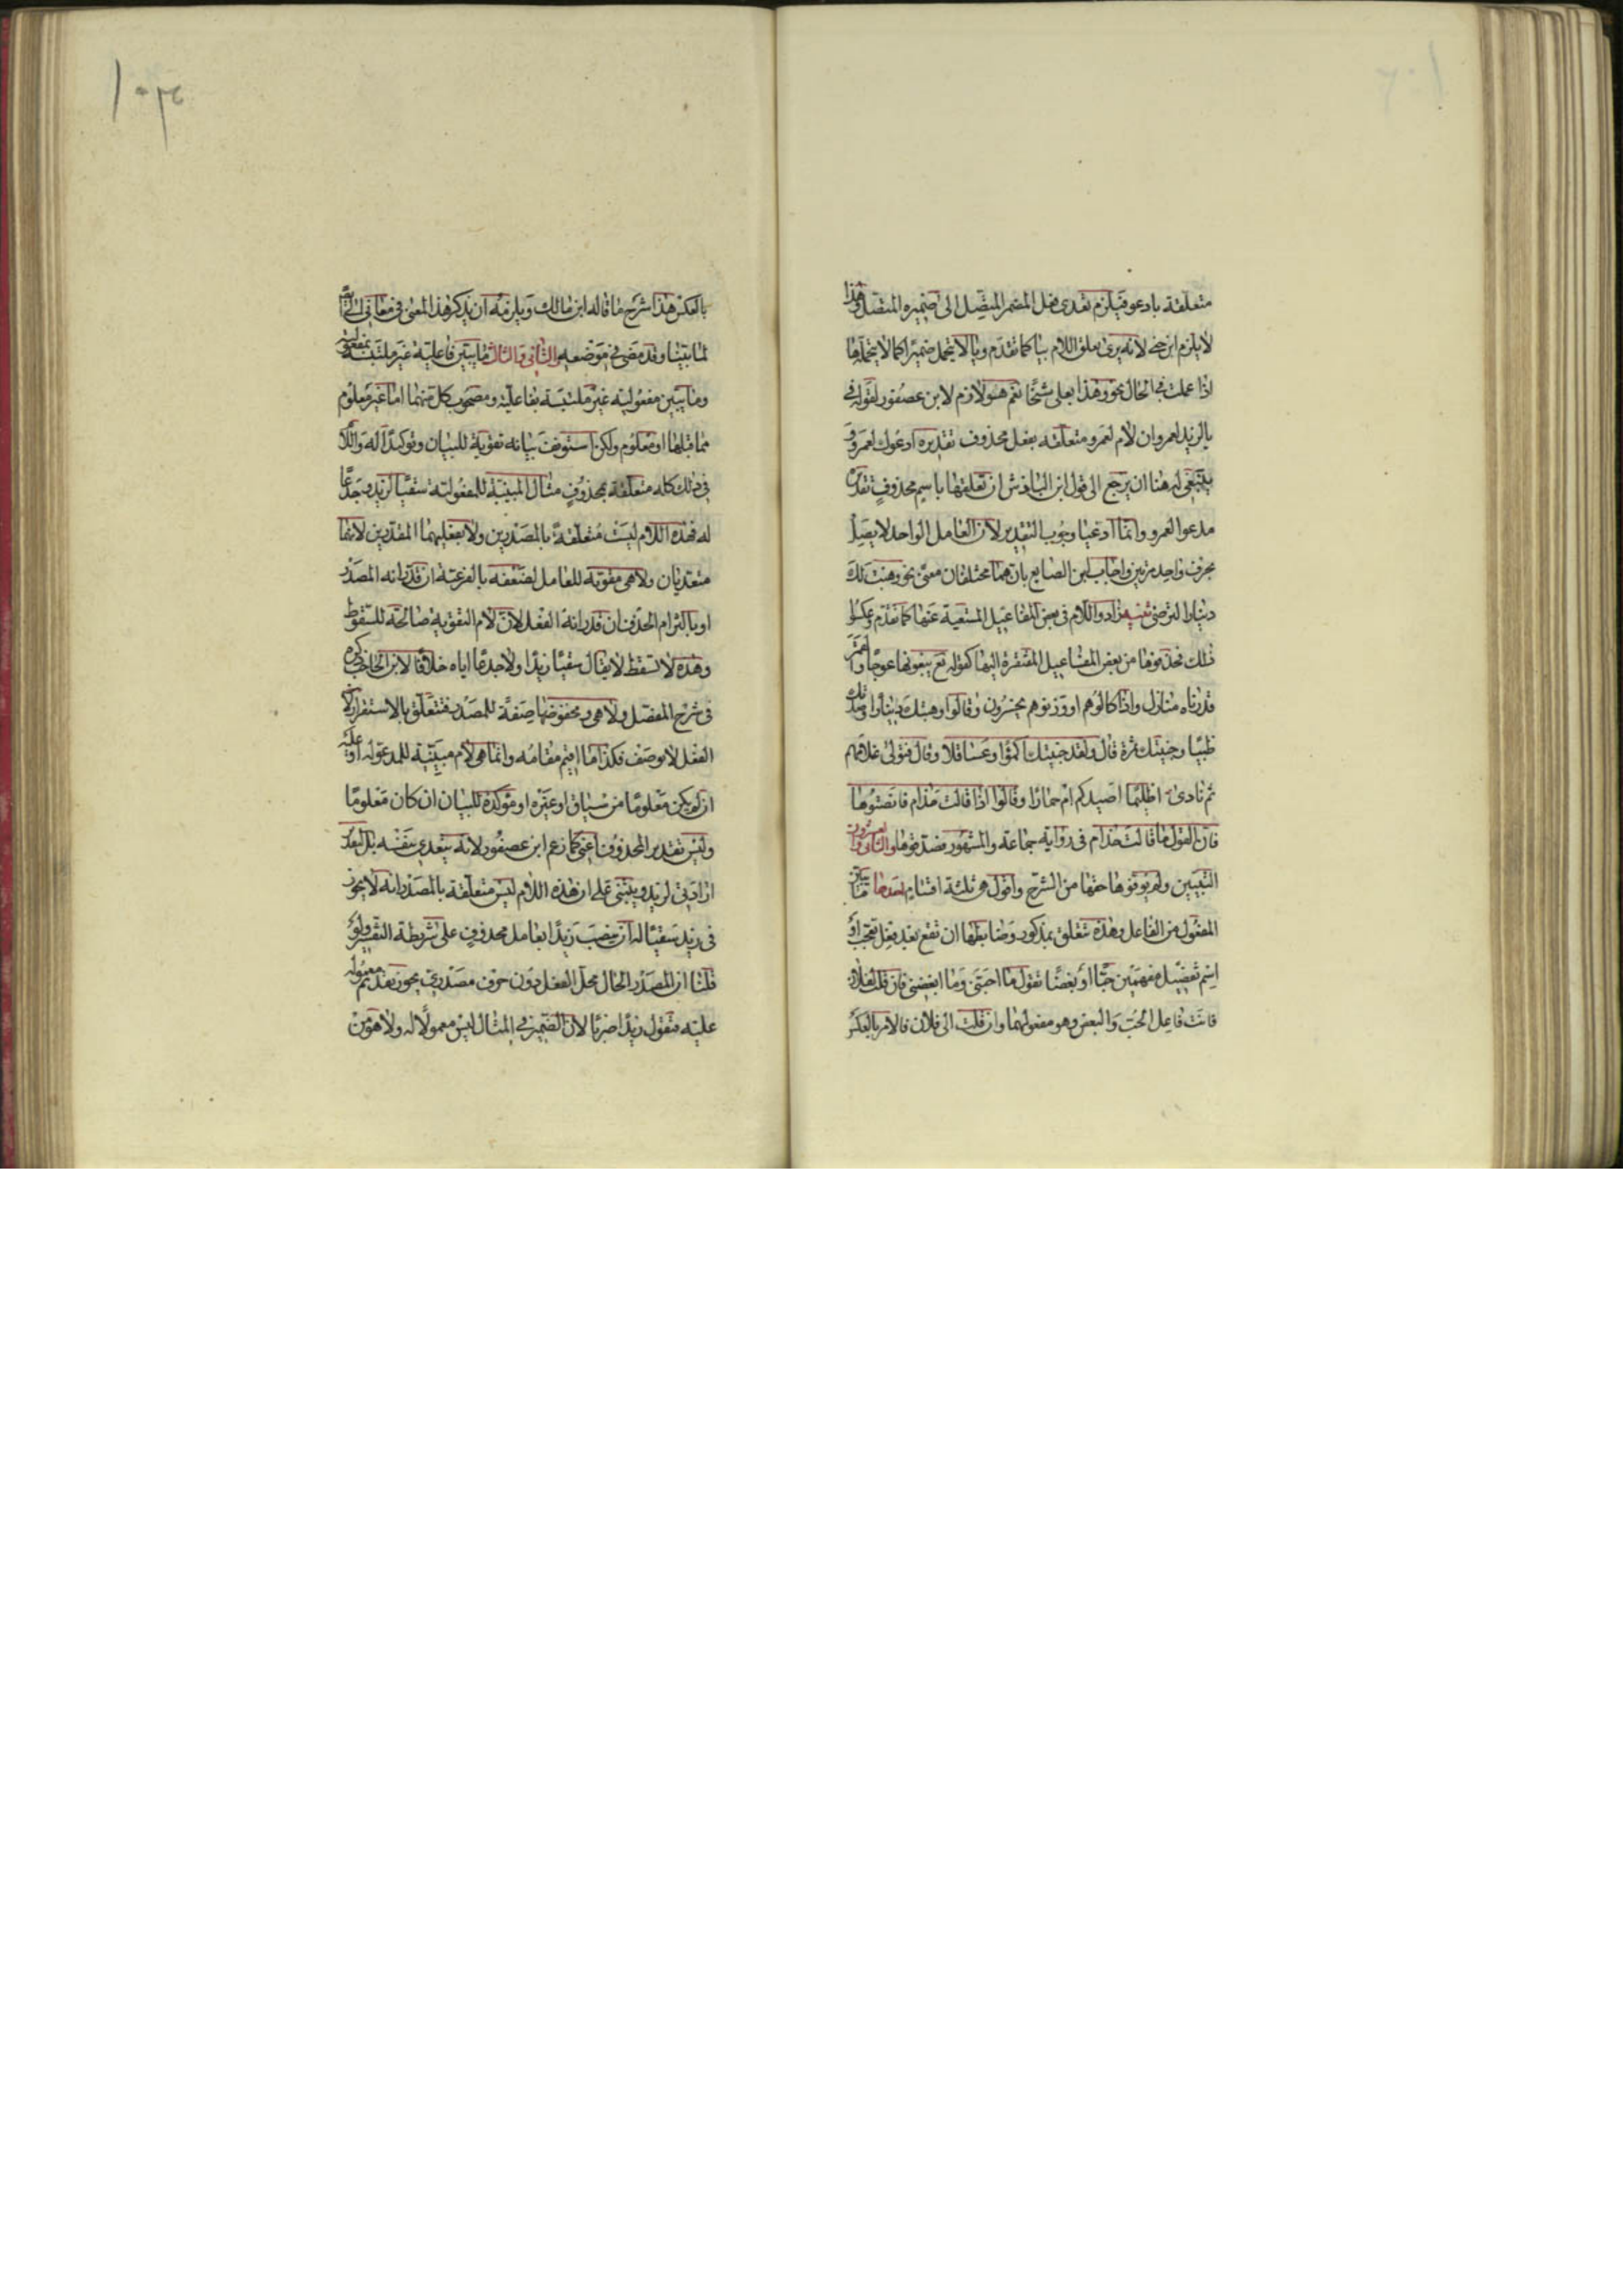 متعلقة بادعو فيلزم تعدى فعل المضمر المتصل الى ضميره المتصل وهذا
لا يلزم ابن جنى لانه يرى تعلق اللام بيا كما تقدم ويا لا يتحمل ضميرا كما لا يتحملها
اذا عملت فى الحال نحو وهذا بعلى شيخا نعم هو لازم لابن عصفور لقوله فى
يا لزيد لعمرو ان لام لعمرو متعلقة بفعل محذوف تقديره ادعوك لعمرو و
ينبغى له هنا ان يرجع الى قول ابن الباذش ان تعلقها باسم محذوف تقديره
مدعوا لعمرو وانما ادعيا وجوب التقدير لان العامل الواحد لا يصل
بحرف واحد مرتين واجاب ابن الصايع بانهما مختلفان معنى نحو وهبت لك
دينارا لترضى تنبيه زادوا اللام فى بعض المفاعيل المستغنية عنها كما تقدم وعكسوا
ذلك فحذفوها من بعض المفاعيل المفتقرة اليها كقوله تع يبغونها عوجا والقمر
قدرناه منازل واذا كالوهم او وزنوهم يخسرون وقالوا وهبتك دينارا وصدتك
ظبيا وجنيتك ثمرة قال ولقد جنيتك اكمؤا وعساقلا وقال فتولى غلامهم
ثم نادى اظليما اصيدكم ام حمارا وقالوا اذا قالت حذام فانصتوها
فان القول ما قالت حذام فى رواية جماعة والمشهور فصدقوها والثانى والعشرون
التبيين ولم يوفوها حقها من الشرح واقول هى ثلثة اقسام احدها ما تبين
المفعول من الفاعل وهذه تتعلق بمذكور وضابطها ان تقع بعد فعل تعجب او
اسم تفضيل مفهمين حبا او بغضا تقول ما احبنى وما ابغضنى فان قلت لفلان
فانت فاعل الحب والبغض وهو مفعولهما وان قلت الى فلان فالامر بالعكس
١٠٣
بالعكس هذا شرح ما قاله ابن مالك ويلزمه ان يذكر هذا المعنى فى معانى الى ايضا
لما بينا وقد مضى فى موضعه والثانى والثالث ما يبين فاعلية غير ملتبسة بمفعولية
وما يبين مفعولية غير ملتبسة بفاعلية ومصحوب كل منهما اما غير معلوم
مما قبلها او معلوم ولكن استونف بيانه تقوية للبيان وتوكيدا له واللام
فى ذلك كله متعلقة بمحذوف مثال المبينة للمفعولية سقيا لزيد وجدعا
له فهذه اللام ليست متعلقة بالمصدرين ولا بفعليهما المقدرين لانهما
متعديان ولا هى مقوية للعامل لضعفه بالفرعية ان قدر انه المصدر
او بالتزام الحذف ان قدر انه الفعل لان لام التقوية صالحة للسقوط
وهذه لا تسقط لا يقال سقيا زيدا ولا جدعا اياه خلافا لابن الحاجب ذكره
فى شرح المفصل ولا هى ومخفوضها صفة للمصدر فتتعلق بالاستقرار لان
الفعل لا يوصف فكذا ما اقيم مقامه وانما هى لام مبينة للمدعو له او عليه
ان لم يكن معلوما من سياق او غيره او مؤكدة للبيان ان كان معلوما
وليس تقدير المحذوف اعنى كما زعم ابن عصفور لانه يتعدى بنفسه بل التقدير
ارادتى لزيد وينبنى على ان هذه اللام ليست متعلقة بالمصدر انه لا يجوز
فى زيد سقيا له ان ينصب زيدا بعامل محذوف على شريطة التفسير ولو
قلنا ان المصدر الحال محل الفعل دون حرف مصدرى يجوز تقديم معموله
عليه فتقول زيدا ضربا لان الضمير فى المثال ليس معمولا له ولا هو من